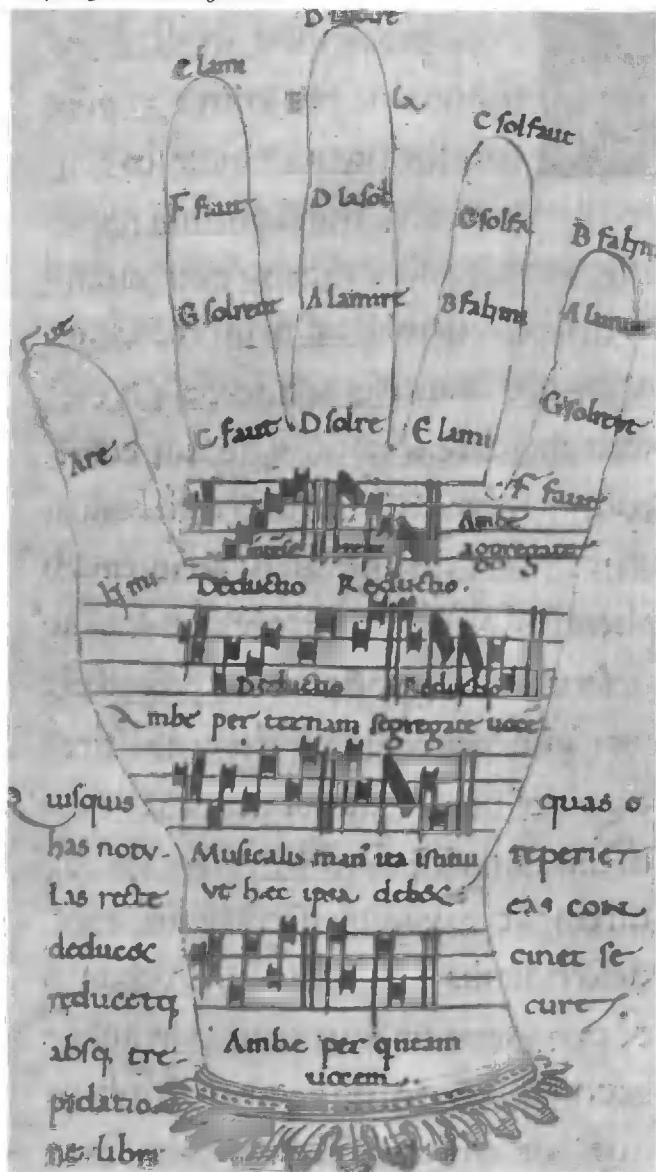 D lasolre
E lami
E la
C solfaut
F faut
D lasol
C solfa
B fa ♮ mi
G solreut
A lamire
B fa ♮ mi
A lamire
Γ ut
G solreut
A re
C faut
D solre
E lami
F faut
Ambe
aggregate
♮ mi
Deductio Reductio.
Deductio Reductio
Ambe per ternam segregate uocē
uisquis
has notu-
las recte
deducet
reducetq
absq tre-
pidatio
ne libri
Musicalis man' ita istitui
Vt hæc ipsa debet
quas
reperiet
eas con
cinet se
cure.
Ambe per qntam
uocem.